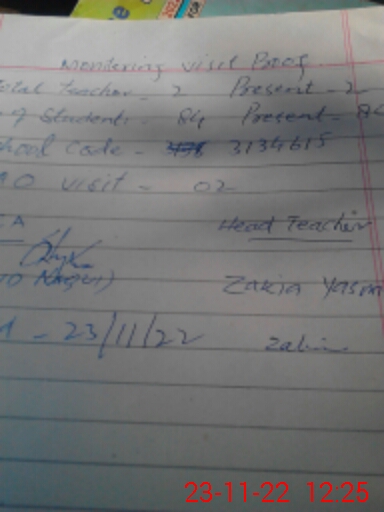 Mondering visit Proof
otal teacher - 2 Present - 2
of Students - 84 Present - 84
hool Code - 3134615
AO visit - 02
EA Head Teacher
TO Nagar) Zakia Yasm
- 23/11/22 Zakia
23-11-22 12:25